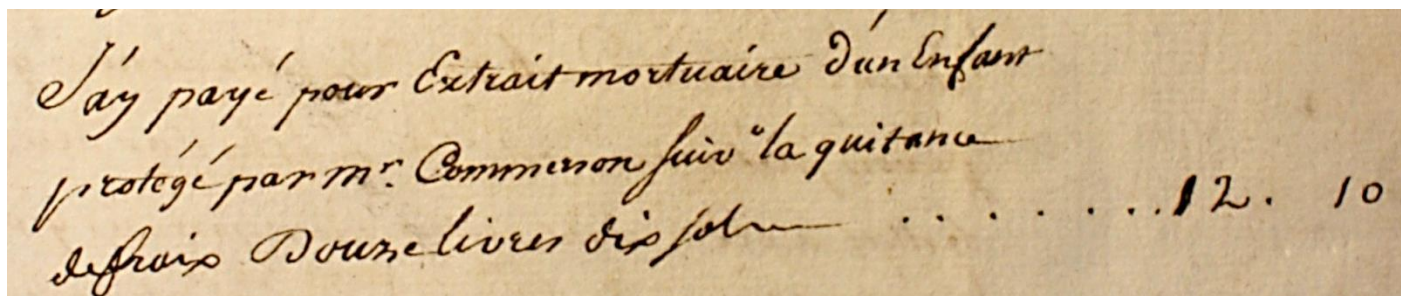 J'ay payé pour Extrait mortuaire d'un Enfant
protégé par mr. Commerson suiv.t la quitance
de frais Douze livres dix sols ........ 12. 10